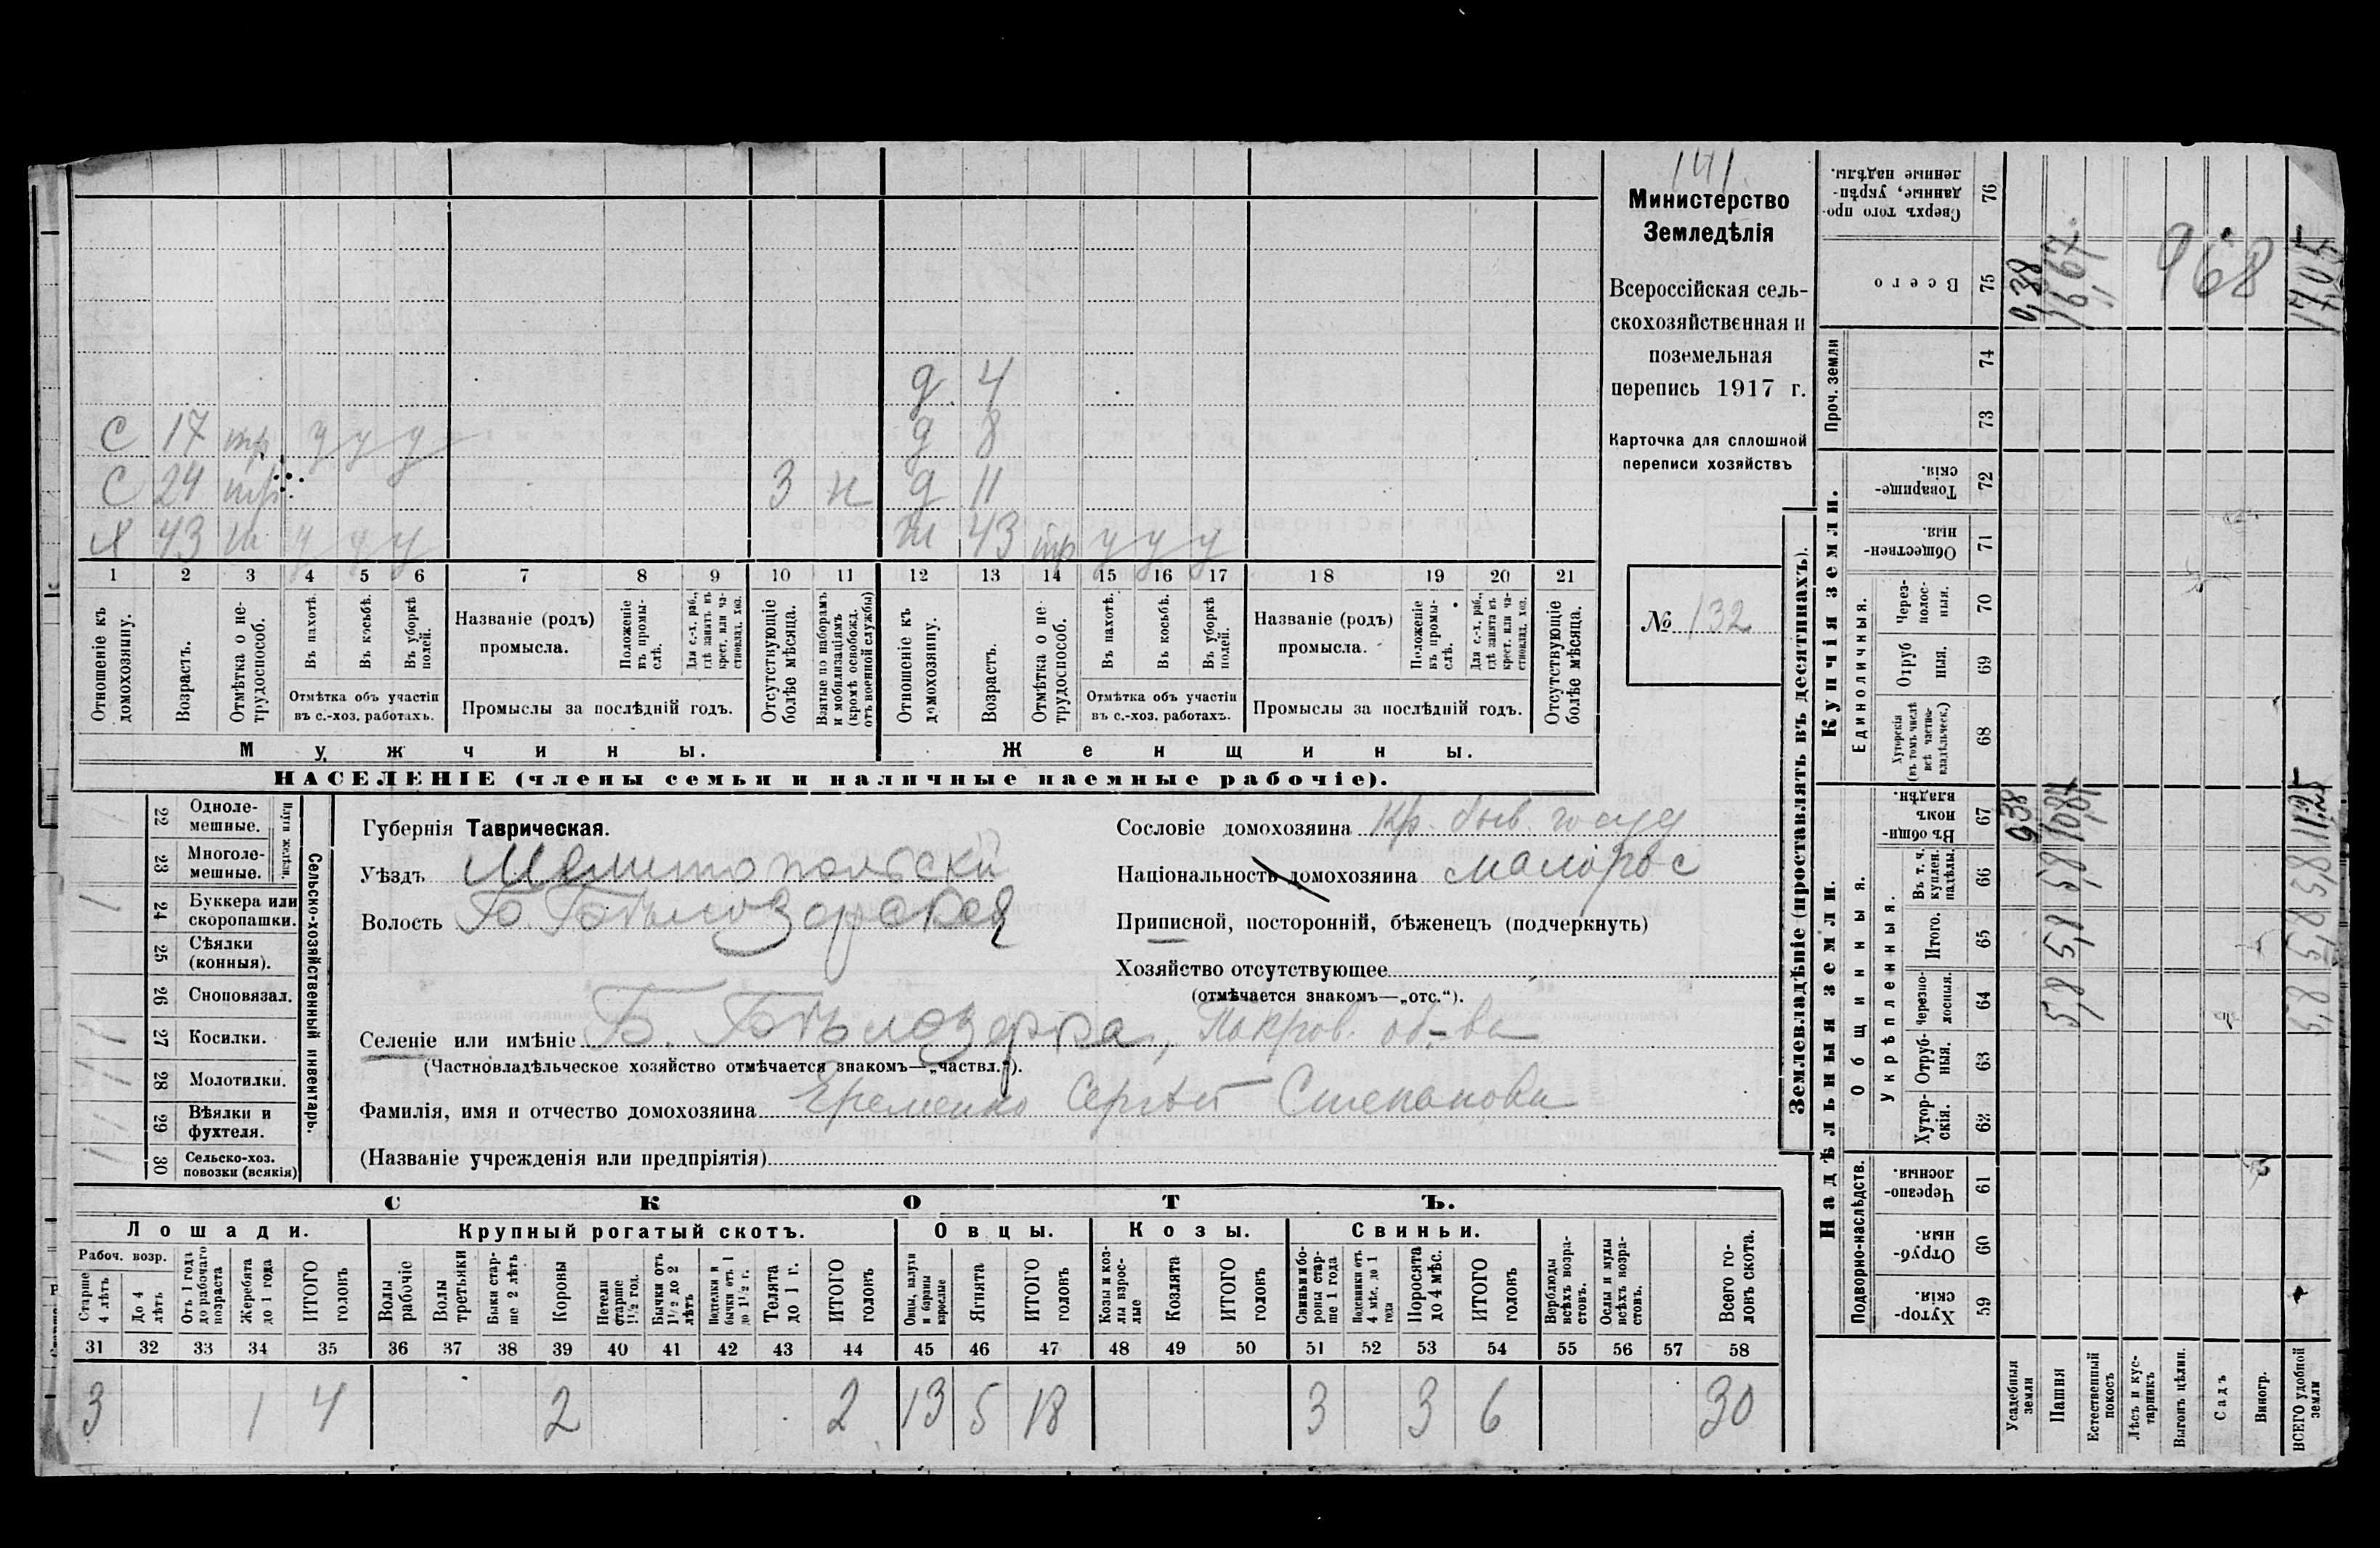 141
Министерство
Земледѣлія
Всероссійская сель-
скохозяйственная и
поземельная
перепись 1917 г.
Карточка для сплошной
переписи хозяйствъ
№ 132
д 4
С 17 тр у у у д 8
С 24 тр 3 н д 11
Х 43 т у у у ж 43 тр у у у
1 2 3 4 5 6 7 8 9 10 11 12 13 14 15 16 17 18 19 20 21
Отношеніе къ домохозяину.
Возрастъ.
Отмѣтка о не-трудоспособ.
Въ пахотѣ.
Въ косьбѣ.
Въ уборкѣ полей.
Отмѣтка объ участіи въ с.-хоз. работахъ.
Названіе (родъ) промысла.
Положеніе въ промы-слѣ.
Для с.-х. раб., гдѣ занятъ въ крест. или ча-стновлад. хоз.
Промыслы за послѣдній годъ.
Отсутствующіе болѣе мѣсяца.
Взятые по наборамъ и мобилизаціямъ (кромѣ освобожд. отъ военной службы)
Отношеніе къ домохозяину.
Возрастъ.
Отмѣтка о не-трудоспособ.
Въ пахотѣ.
Въ косьбѣ.
Въ уборкѣ полей.
Отмѣтка объ участіи въ с.-хоз. работахъ.
Названіе (родъ) промысла.
Положеніе въ промы-слѣ.
Для с.-х. раб., гдѣ занята въ крест. или ча-стновлад. хоз.
Промыслы за послѣдній годъ.
Отсутствующіе болѣе мѣсяца.
Мужчины. Женщины.
НАСЕЛЕНІЕ (члены семьи и наличные наемные рабочіе).
Сельско-хозяйственный инвентарь.
Плуги желѣзн.
22 Одноле-мешные.
23 Многоле-мешные.
1 24 Буккера или скоропашки.
25 Сѣялки (конныя).
26 Сноповязал.
27 Косилки.
28 Молотилки.
29 Вѣялки и фухтеля.
30 Сельско-хоз. повозки (всякія)
Губернія Таврическая.
Уѣздъ Мелитопольскій
Волость Б. Бѣлозерская
Селеніе или имѣніе Б. Бѣлозерка, Покров. об-ва
(Частновладѣльческое хозяйство отмѣчается знакомъ—„частвл.“).
Фамилія, имя и отчество домохозяина Еременко Сергѣй Степанови
(Названіе учрежденія или предпріятія)
Сословіе домохозяина Кр. быв. госуд
Національность домохозяина малорос
Приписной, посторонній, бѣженецъ (подчеркнуть)
Хозяйство отсутствующее
(отмѣчается знакомъ—„отс.“).
СКОТЪ.
Лошади. Крупный рогатый скотъ. Овцы. Козы. Свиньи.
Рабоч. возр.
Старше 4 лѣтъ
До 4 лѣтъ
Отъ 1 года до рабочаго возраста
Жеребята до 1 года
ИТОГО головъ
Волы рабочіе
Волы третьяки
Быки стар-ше 2 лѣтъ
Коровы
Нетели старше 1½ год.
Бычки отъ 1½ до 2 лѣтъ
Подтелки и бычки отъ 1 до 1½ г.
Телята до 1 г.
ИТОГО головъ
Овцы, валухи и бараны взрослые
Ягнята
ИТОГО головъ
Козы и коз-лы взрос-лые
Козлята
ИТОГО головъ
Свиньи и бо-ровы стар-ше 1 года
Подсвинки отъ 4 мѣс. до 1 года
Поросята до 4 мѣс.
ИТОГО головъ
Верблюды всѣхъ возра-стовъ.
Ослы и мулы всѣхъ возра-стовъ.
Всего го-ловъ скота.
31 32 33 34 35 36 37 38 39 40 41 42 43 44 45 46 47 48 49 50 51 52 53 54 55 56 57 58
3 1 4 2 2 13 5 18 3 3 6 30
Землевладѣніе (проставлять въ десятинахъ).
Надѣльныя земли. Купчія земли. Проч. земли
Подворно-наслѣдств. Общинныя. Укрѣпленныя. Единоличныя.
Хутор-скія. 59
Отруб-ныя. 60
Черезпо-лосныя. 61
Хутор-скія. 62
Отруб-ныя. 63
Черезпо-лосныя. 64
Итого. 65
Въ т. ч. куплен. надѣлы. 66
Въ общи-номъ владѣн. 67
Хуторскія (въ томъ числѣ всѣ частно-владѣльческ.) 68
Отруб ныя. 69
Через-полос-ныя. 70
Обществен-ныя. 71
Товарище-скія. 72
73
74
Всего 75
Сверхъ того про-данные, укрѣп-ленные надѣлы. 76
Усадебныя земли 0,38 0,38
Пашня 5,8 5,8 5,8 10,87 16,67
Естественный покосъ
Лѣсъ и кус-тарникъ
Выгонъ цѣлин.
Садъ
Виногр.
ВСЕГО удобной земли 5,8 5,8 5,8 11,25 17,05
968